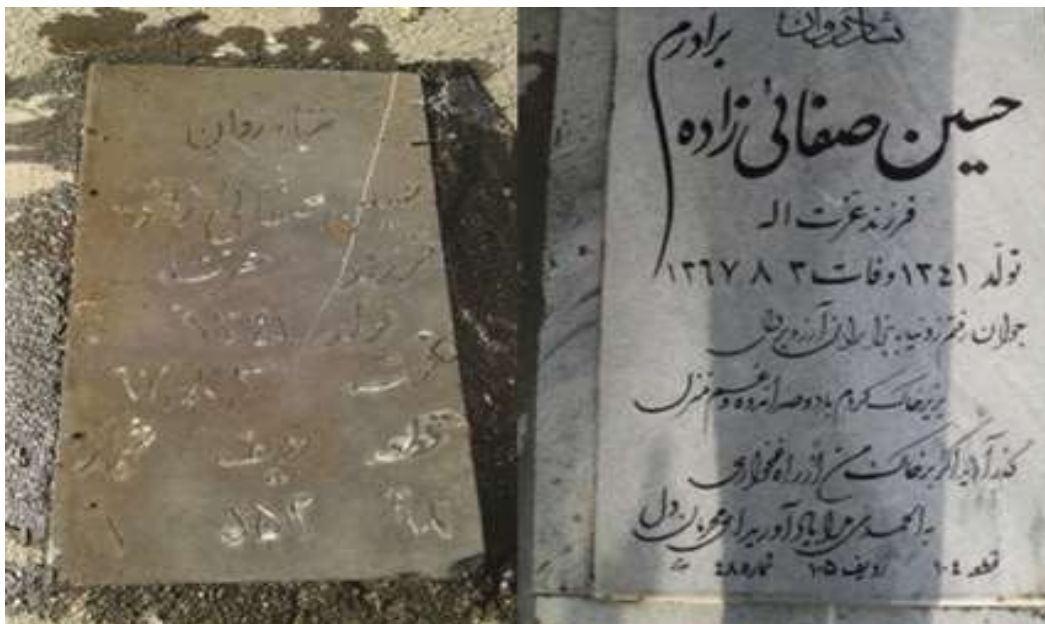 شادروان
صفائی زاده
فرزند عزت
تولد
۶۷ ۸ ۳
قطعه ردیف شماره
شادروان
برادرم
حسین صفائی زاده
فرزند عزت اله
تولد ۱۳۴۱ وفات ۳ ۸ ۱۳۶۷
جوان رفتم ز دنیا با هزاران آرزو بر دل
بزیر خاک کردم با دو صد اندوه و غم منزل
گذر آرید اگر بر خاک من از راه غمخواری
به الحمدی مرا یاد آورید ای محرمان دل
قطعه ۱۰۴ ردیف ۱۰۵ شماره ۴۸